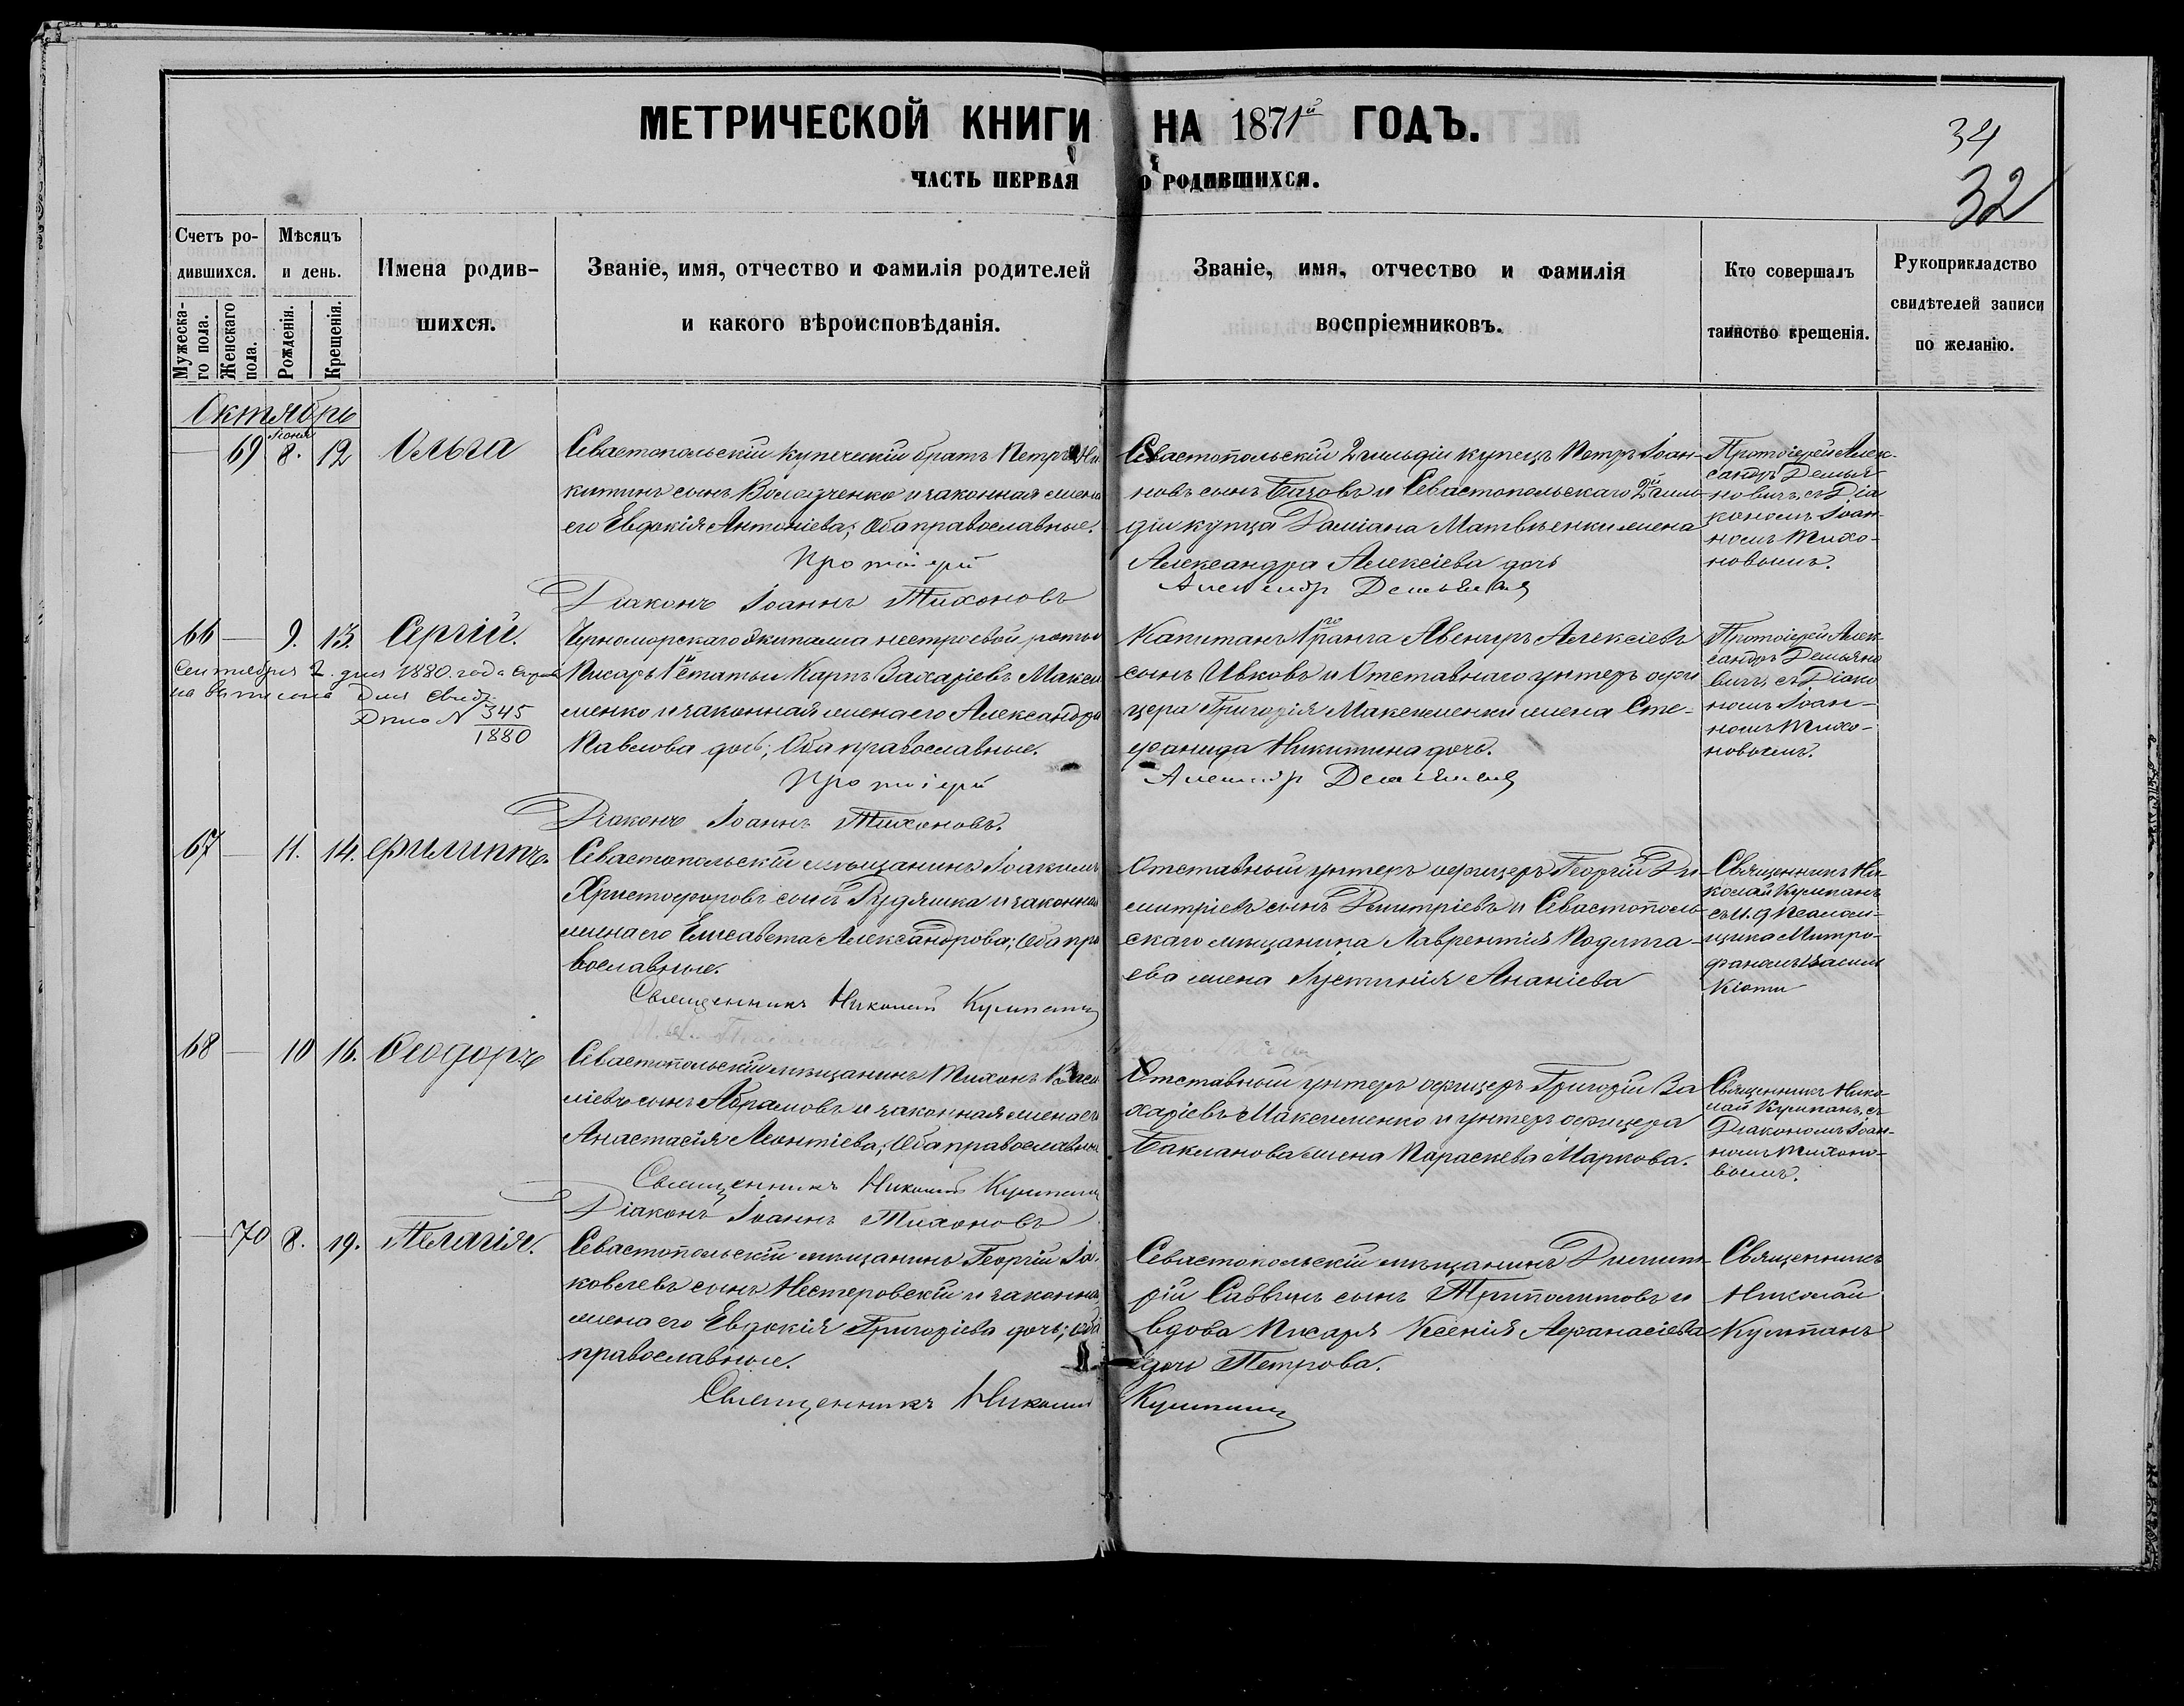 МЕТРИЧЕСКОЙ КНИГИ НА 1871й ГОДЪ.
34
ЧАСТЬ ПЕРВАЯ О РОДИВШИХСЯ.
32
Счетъ ро-
дившихся.
Мужеска-
го пола.
Женскаго
пола.
Мѣсяцъ
и день.
Рожденія.
Крещенія.
Имена родив-
шихся.
Званіе, имя, отчество и фамилія родителей
и какого вѣроисповѣданія.
Званіе, имя, отчество и фамилія
воспріемниковъ.
Кто совершалъ
таинство крещенія.
Рукоприкладство
свидѣтелей записи
по желанію.
Октябрь
69 8. 12 Ольга
Севастопольскій купеческій братъ Петръ Ни
китинъ сынъ и законная жена
его Евдокія Антоніева; Оба православные.
Протоіерей
Діаконъ Іоаннъ Тихоновъ
Севастопольскій 2 гильдіи купецъ Петръ Іоан-
новъ сынъ Базовъ и Севастопольскаго 2й гиль-
діи купца Даміана Матвѣенки жена
Александра Алексіева дочь
Александр Демьянович
Протоіерей Алек-
сандръ Демья-
новичъ, съ Діа
кономъ Іоан-
номъ Тихо-
новымъ.
66 — 9. 13. Сергій.
Сентября 2. дня 1880 года
Дѣло № 345
1880
Черноморскаго Экипажа нестроевой роты
Писарь 1й статьи Карпъ Захаріевъ Макси
менко и законная жена его Александра
Павлова дочь; Оба православные.
Протоіерей
Діаконъ Іоаннъ Тихоновъ.
Капитанъ 1го ранга Авениръ Алексіевъ
сынъ Ивковъ и Отставнаго унтеръ офи
цера Григорія Максименки жена Сте-
фанида Никитина дочь.
Александр Демьянович
Протоіерей Алек-
сандръ Демьяно
вичъ, съ Діако
номъ Іоан-
номъ Тихо-
новымъ.
67 — 11. 14. Филиппъ.
Севастопольскій мѣщанинъ Іоакимъ
Христофоровъ сынъ Рудяшка и законная
жена его Елисавета Александрова; Оба пра
вославные.
Священникъ Николай Кулипанъ
Отставный унтеръ офицеръ Георгій Ди-
митріевъ сынъ Димитріевъ и Севастополь-
скаго мѣщанина Лаврентія
жена Іустинія Ананіева
Священникъ Ни-
колай Кулипанъ
съ И. д. Псалом-
щика Митро-
фаномъ
68 — 10 16. Ѳеодоръ
Севастопольскій мѣщанинъ Тихонъ Васи
ліевъ сынъ Абрамовъ и законная жена его
Анастасія Леонтіева; Оба православные
Священникъ Николай Кулипанъ
Діаконъ Іоаннъ Тихоновъ
Отставной унтеръ офицеръ Григорій За
харіевъ Максименко и унтеръ офицера
Бакланова жена Параскева Маркова.
Священникъ Нико-
лай Кулипанъ, съ
Діакономъ Іоан-
номъ Тихоно-
вымъ.
— 70 8. 19. Пелагія.
Севастопольскій мѣщанинъ Георгій Іа
ковлевъ сынъ Нестеровскій и законная
жена его Евдокія Григоріева дочь; Оба
православные.
Священникъ Николай Кулипанъ
Севастопольскій мѣщанинъ Димит-
рій Саввинъ сынъ Триполитовъ и
вдова Писаря Ксенія Аѳанасіева
дочь Петрова.
Священникъ
Николай
Кулипанъ